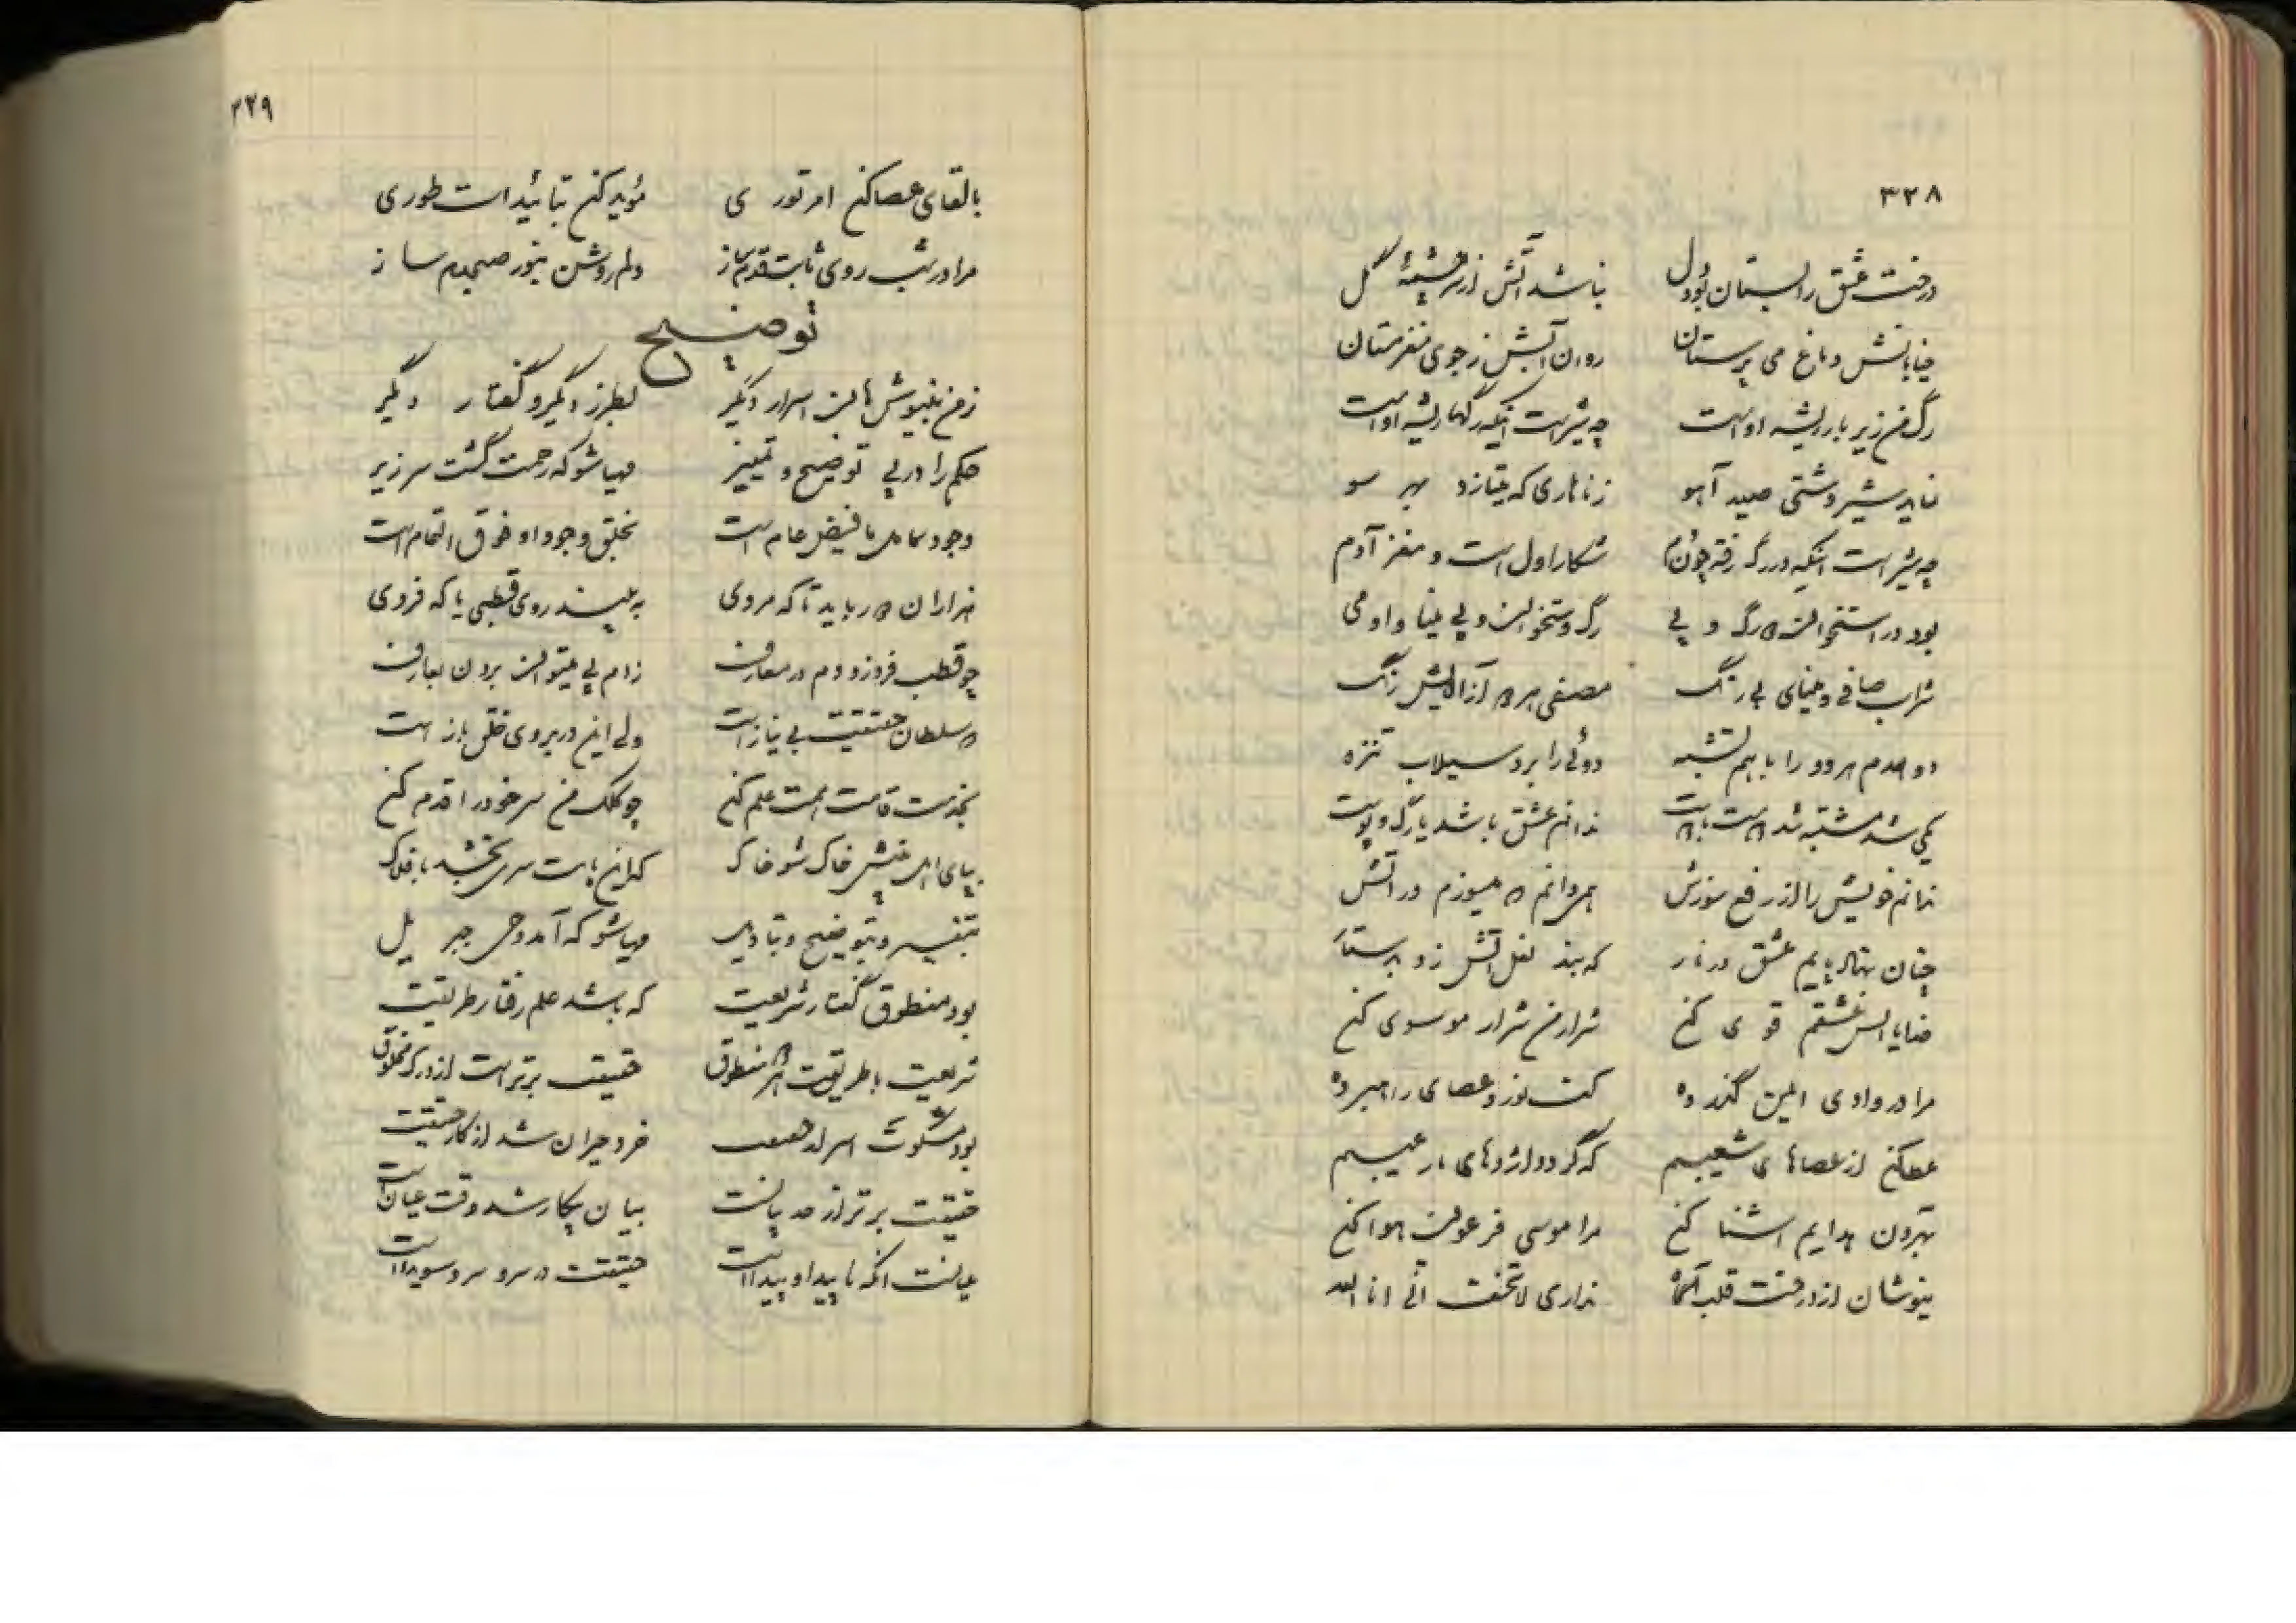 ۳۲۸
درخت عشق را بستان بود دل نباشد آتش از سرچشیهٔ گل
خیابانش دماغ می پرستان روان آبش ز جوی مغز مستان
رگ من زیر بار ریشه اوست چه شیر است اینکه رگها ریشه اوست
نماید شیر دشتی صید آهو زناهاری که میتازد بهر سو
چه شیر است اینکه در رگ رفته چون دم شکار اول است و مغز آدم
بود در استخوان و رگ و پی رگ و ستخوان و پی مینا و او می
شراب صافی و مینای بی رنگ مصفی هر دو از آلایش رنگ
دو همدم هر دو را با هم تشبه دوئی را برد سیلاب تنزه
یکی شد مشتبه شد ندانم عشق باشد یا رگ و پوست
ندانم خویش را از رفع سوزش همی دانم که میسوزم در آتش
چنان بنهاد پایم عشق در نار که بند نعل آتش زد
خدایا آتش عشقم قوی کن شرار من شرار موسوی کن
مرا در وادی ایمن گذر ده کف نور و عصای راهبر ده
عطا کن از عصاهای شعیبم که گردد اژدهای مار عیبم
بهرون هدایم آشنا کن مرا موسی فرعون هوا کن
بنوشان از درخت قلب آگاه نداری لاتخف انی انا الله
۳۲۹
بالقای عصا کن امر توری مؤید کن بتائیدات طوری
مرا در شب روی ثابت قدم ساز دلم روشن بنور صبحدم ساز
توضیح
ز من بنیوش هان اسرار دیگر بطرز دیگر و گفتار دیگر
حکم را در پی توضیح و تمییز مهیا شو که رحمت گشت سرریز
وجود کامل با فیض عام است بخلق وجود او فوق التمام است
هزاران دور باید تا که مردی به بیند روی قطبی یا که فردی
چو قطب فرد زد دم در معارف ز دم پی میتوان بردن بعارف
در سلطان حقیقت بی نیاز است ولی این در بروی خلق باز است
بخدمت قامت همت علم کن چو کلک من سر خود را قدم کن
بپای اهل بینش خاک شو خاک که این پایت سری بخشد بافلاک
بتفسیر و بتوضیح و بتاویل مهیا شو که آمد وحی جبریل
بود منطوق گفتار شریعت که باشد علم رفتار طریقت
شریعت با طریقت منطوق حقیقت برتر است از درک مخلوق
بود مشکوت اسرار حقیقت خرد حیران شد از کار حقیقت
حقیقت برتر از حد بیانست بیان بیکار شد وقت عیانست
عیانست آنکه ناپیدا و پیداست حقیقت در سر و سر و سویداست